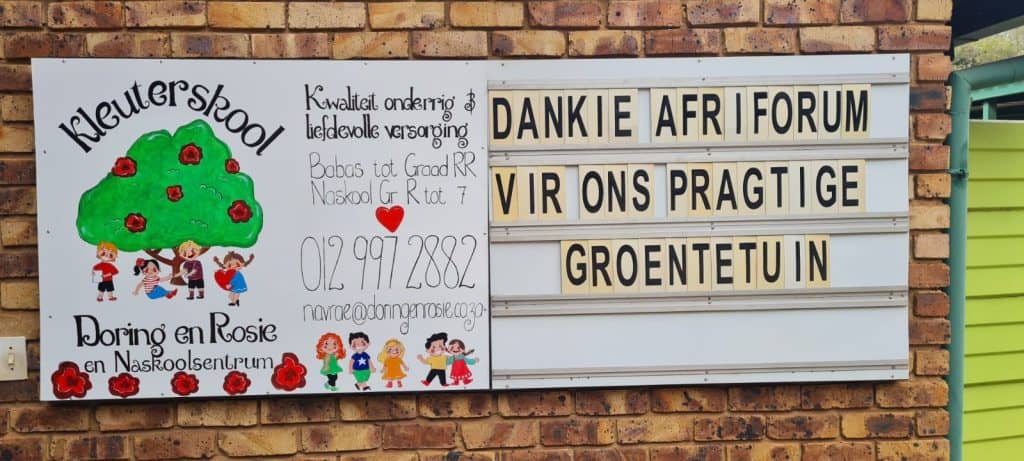 Kleuterskool
Doring en Rosie
en Naskoolsentrum
Kwaliteit onderrig &
liefdevolle versorging
Babas tot Graad RR
Naskool Gr R tot 7
012 997 2882
navrae@doringenrosie.co.za
DANKIE AFRIFORUM
VIR ONS PRAGTIGE
GROENTETUIN